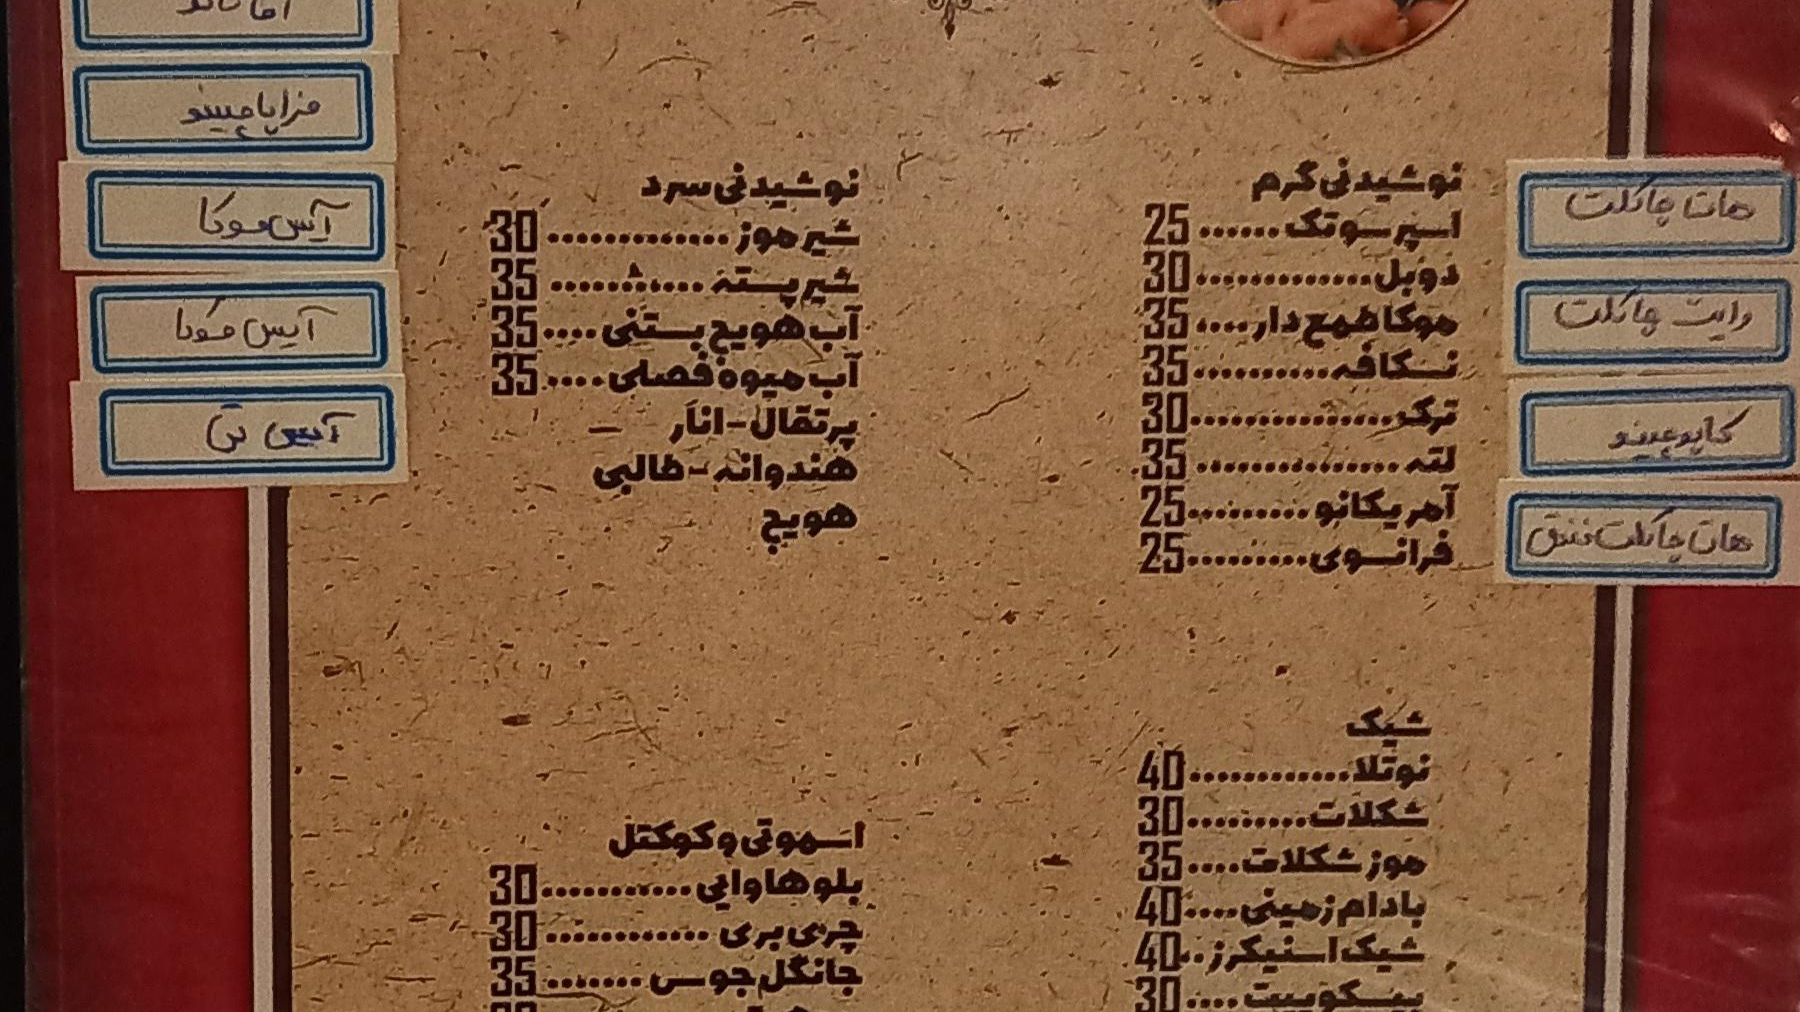 نوشیدنی گرم
اسپرسو تک......25
دوبل.............30
موکا طمع دار....35
نسکافه..........35
ترک...............30
لته...............35
آمریکانو.........25
فرانسوی.........25
هات چاکلت
وایت چاکلت
کاپوچینو
هات چاکلت فندق
شیک
نوتلا............40
شکلات.........30
موز شکلات....35
بادام زمینی....40
شیک اسنیکرز..40
بیسکوییت....30
نوشیدنی سرد
شیر موز..............30
شیر پسته............35
آب هویج بستنی....35
آب میوه فصلی....35
پرتقال-انار
هندوانه-طالبی
هویج
فراپاچینو
آیس موکا
آیس موکا
آیس تی
اسموتی و کوکتل
بلو هاوایی...........30
چری بری............30
جانگل جوسی.......35